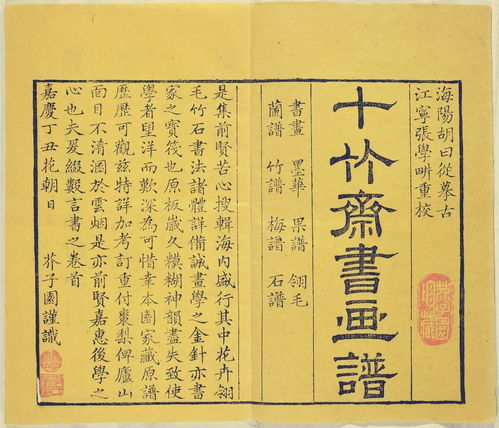 海陽胡曰從摹古
江寧張學畊重校
十竹齋書画譜
書畫 墨華 果譜 翎毛
蘭譜 竹譜 梅譜 石譜
是集前賢苦心搜輯海内盛行其中花卉翎
毛竹石書法諸體詳備誠畫學之金針亦書
家之寶筏也原板歲久糢糊神韻盡失致使
學者望洋而歎深為可惜幸本園家藏原譜
歷歷可觀兹特詳加考訂重付棗棃俾廬山
面目不淆溷於雲烟是亦前賢嘉惠後學之
心也夫爰綴數言書之卷首
嘉慶丁丑花朝日 芥子園謹識